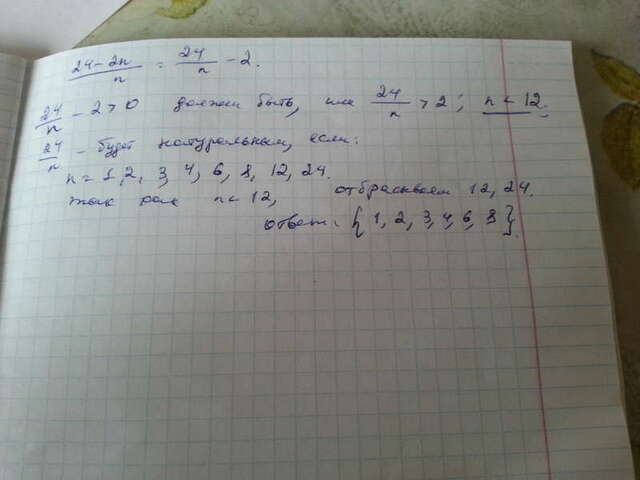 24-2n/n = 24/n - 2.
24/n - 2 > 0 должен быть, или 24/n > 2; n < 12.
24/n - будет натуральным, если:
n = 1, 2, 3, 4, 6, 8, 12, 24.
так как n < 12, отбрасываем 12, 24.
ответ: { 1, 2, 3, 4, 6, 8 }.